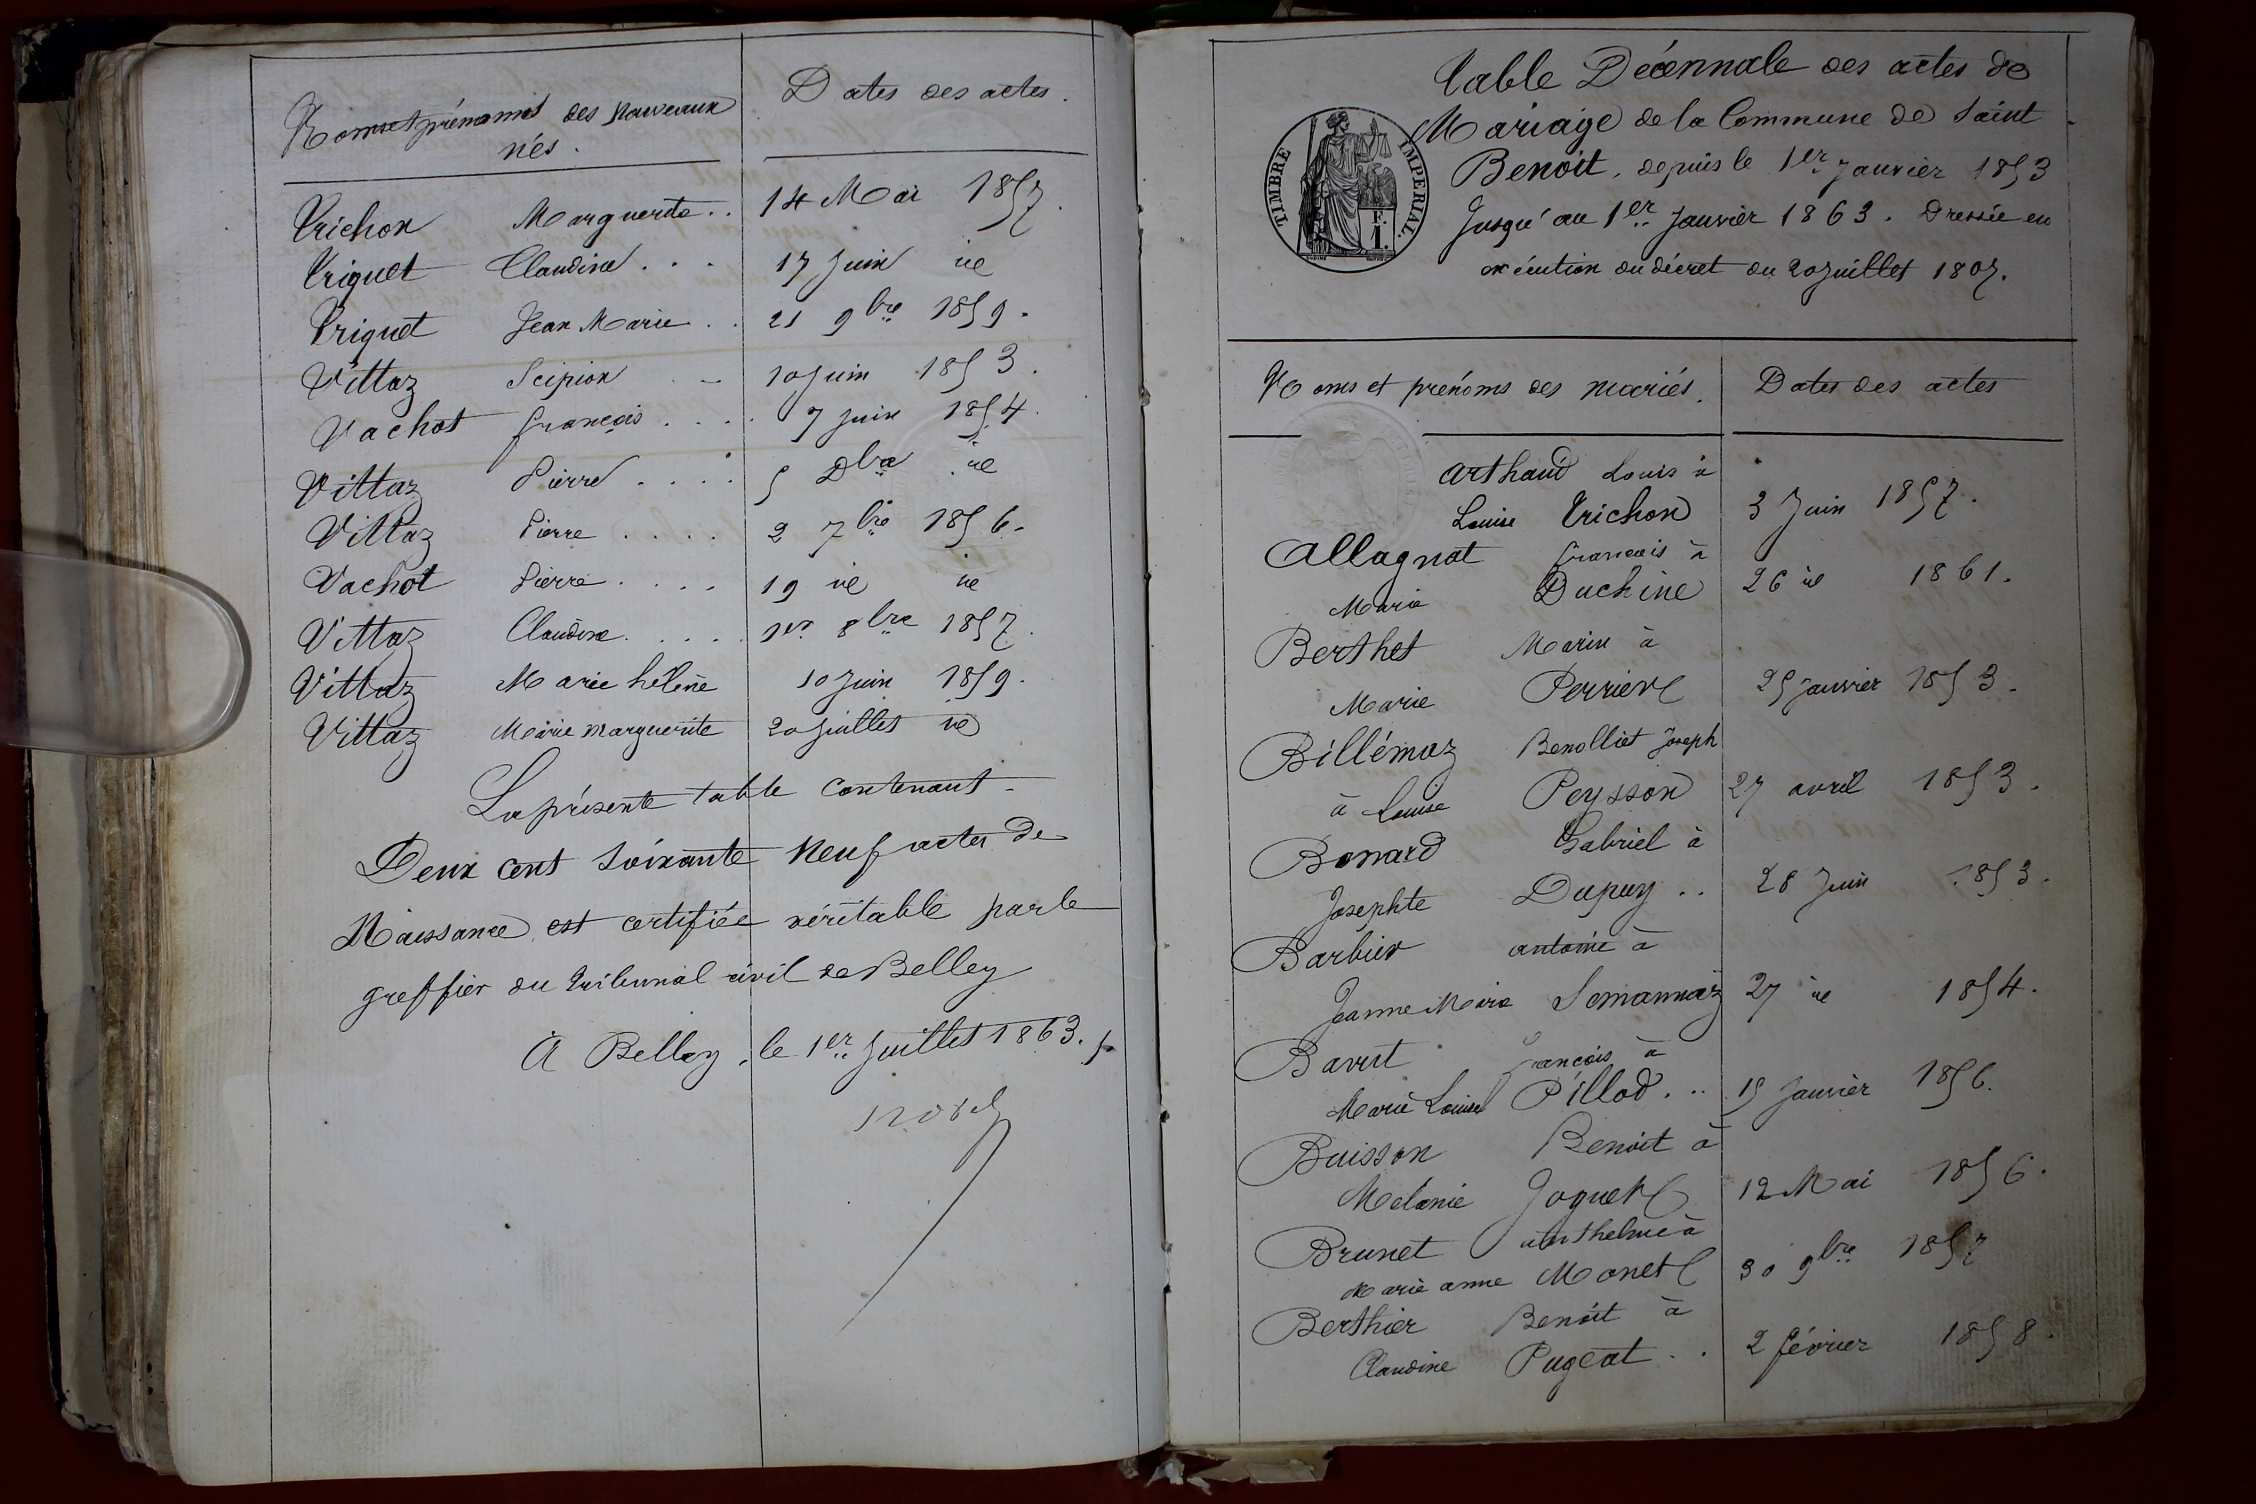 Noms et prénoms des nouveaux
nés.
Dates des actes.
Trichon Marguerite.. 14 Mai 1857.
Triquet Claudine... 17 Juin id
Triquet Jean Marie.. 21 9bre 1859.
Vittaz Scipion - 10 Juin 1853.
Vachot françois.... 7 juin 1854.
Vittaz Pierre.... 5 Dbre id
Vittaz Pierre.... 2 7bre 1856.
Vachot Pierre.... 19 id id
Vittaz Claudine..... 1er 8bre 1857.
Vittaz Marie hélène 10 Juin 1859.
Vittaz Marie Marguerite 20 Juillet id
La présente table contenant
Deux cent soixante neuf actes de
Naissance est certifiée véritable par le
greffier du tribunal civil de Belley
A Belley, le 1er Juillet 1863.
Table Décennale des actes de
Mariage de la Commune de Saint
Benoit, depuis le 1er Janvier 1853
Jusqu'au 1er Janvier 1863. Dressée en
exécution du décret du 20 Juillet 1807.
TIMBRE IMPERIAL.
E.
I.
Noms et prénoms des mariés. Dates des actes
Arthaud Louis à
Louise Trichon 3 Juin 1857.
Allagnat françois à
Marie Duchine 26 id 1861.
Berthet Marin à
Marie Perrier 25 Janvier 1853.
Billémaz Benolliet Joseph
à Louise Peysson 27 avril 1853.
Bonard Gabriel à
Josephte Dupuy.. 28 Juin 1853.
Barbier antoine à
Jeanne Marie 27 id 1854.
Bavut françois à
Marie Louise Pillod... 15 Janvier 1856.
Buisson Benoit à
Melanie Joguet 12 Mai 1856.
Brunet anthelme à
Marie anne Monet 30 9bre 1857
Berthier Benoit à
Claudine Pugeat.. 2 février 1858.